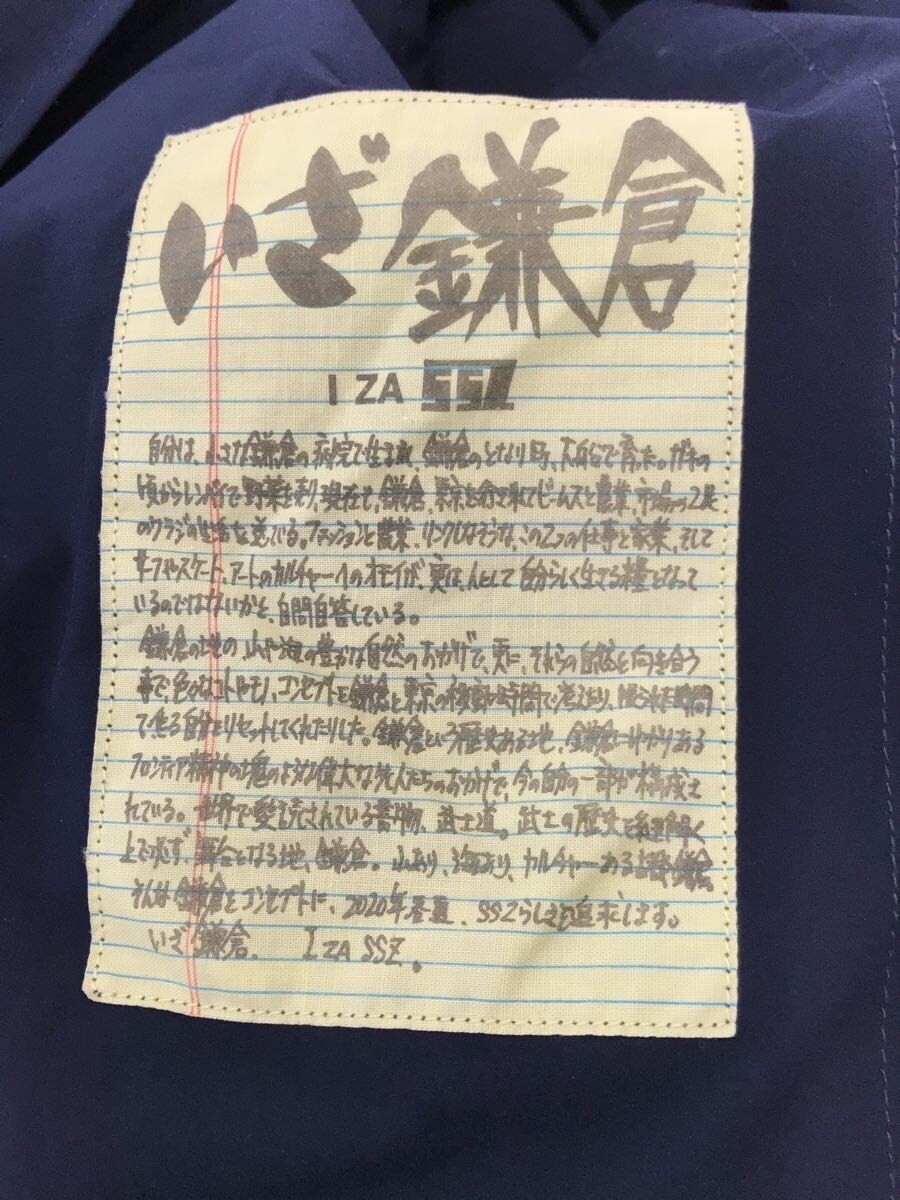 いざ鎌倉
IZA SSZ
自分は、小さな鎌倉の病院で生まれ、鎌倉のとなり町、大船で育った。ガキの
頃から 野菜を売り、現在も、鎌倉、東京を行き来してビームスと農業、市場の2足
のワラジの生活を送っている。ファッションと農業、リンクしなそうな、この2つの仕事と家業、そして
サーフやスケート、アートのカルチャーへのオモイが、実は、人として自分らしく生きる糧となって
いるのではないかと、自問自答している。
鎌倉の地の、山や海の豊かな自然のおかげで、更に、それらの自然と向き合う
事で、色々なコトやモノ、コンセプトを鎌倉と東京の移動の時間で考えたり、限られた時間
で焦る自分をリセットしてくれたりした。鎌倉という歴史ある地、鎌倉にゆかりある
フロンティア精神の塊のような偉大な先人たちのおかげで、今の自分の一部が構成さ
れている。世界で愛読されている書物、武士道。武士の歴史を紐解く
上で必ず、舞台となる地、鎌倉。山あり、海あり、カルチャーある 鎌倉
そんな鎌倉をコンセプトに、2020年春夏、SSZらしさを追求します。
いざ鎌倉. IZA SSZ.